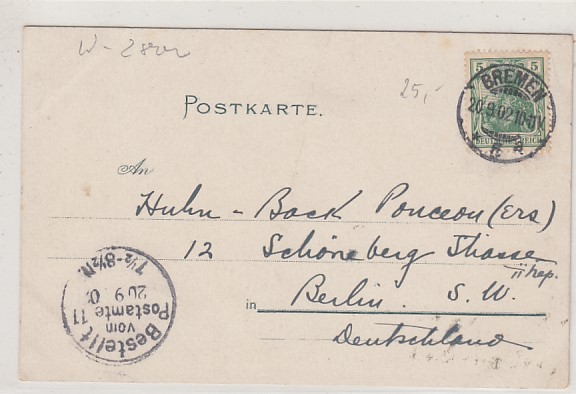 W - 28
25,-
5 5
BREMEN
20.9.02.10-11V
* h *
DEUTSCHES REICH
POSTKARTE.
An
Huhn - Back
12 Schöneberg Strasse
II Trep.
in Berlin. S. W.
Deutschland
Bestellt
vom
Postamte 11
20 9 0
7½-8½N.